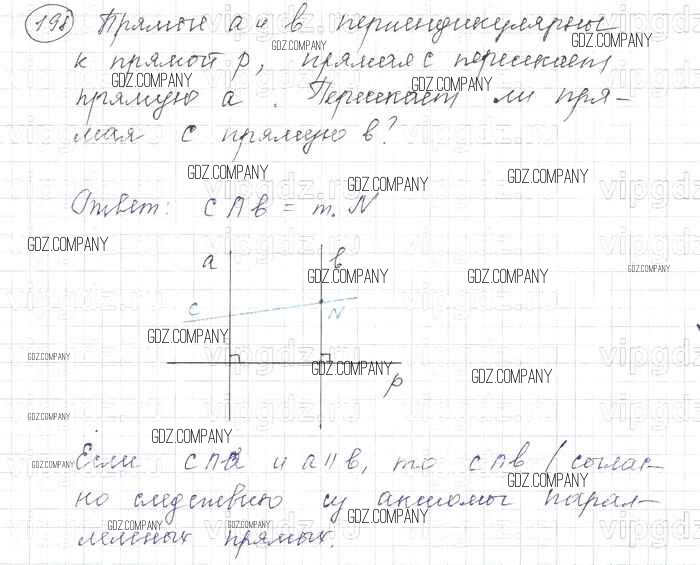 198 Прямые a и b перпендикулярны
к прямой p, прямая c пересекает
прямую a. Пересекает ли пря-
мая c прямую b?
Ответ: c ∩ b = т. N
a b
c N
p
Если c ∩ a и a || b, то c ∩ b (соглас-
но следствию из аксиомы парал-
лельных прямых.
GDZ.COMPANY
vipgdz.ru